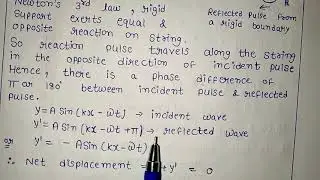 Newton's 3rd law, rigid
Support exerts equal &
opposite reaction on string.
Reflected pulse from
a rigid boundary
So reaction pulse travels along the string
in the opposite direction of incident pulse
Hence, there is a phase difference of
π or 180° between incident pulse & reflected
pulse.
y = A Sin (kx - ωt) → incident wave
y' = A Sin (kx - ωt + π) → reflected wave
or y' = - A Sin (kx - ωt)
∴ Net displacement = + y' = 0